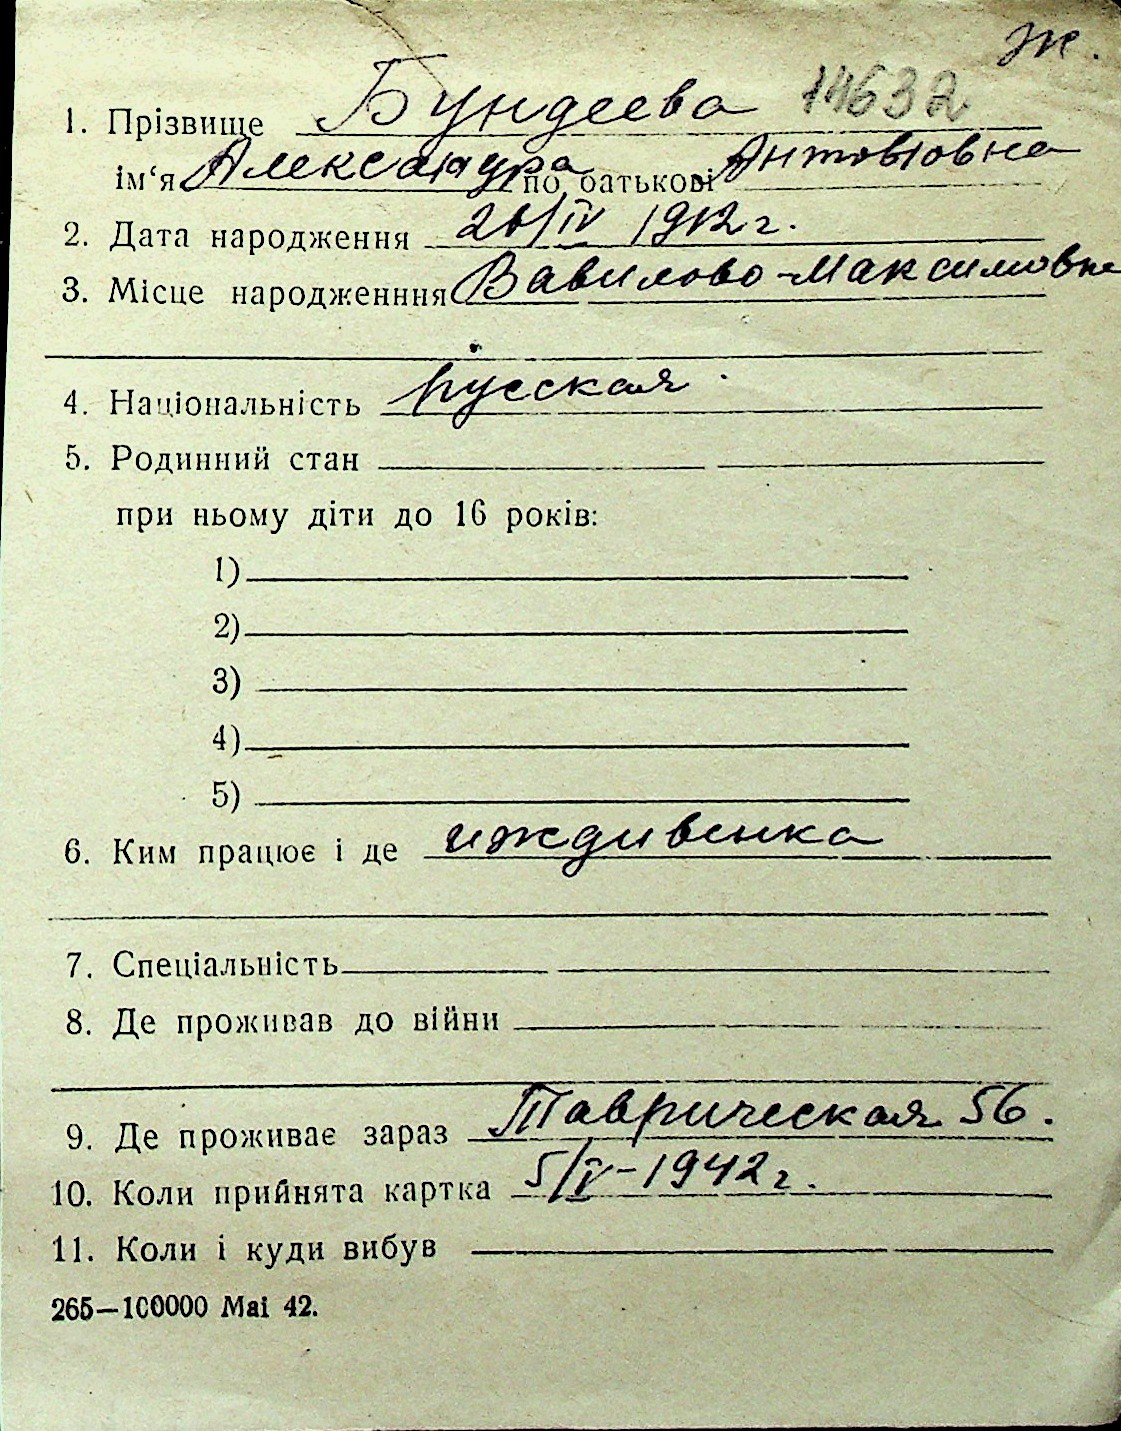 ж.
1. Прізвище Бундеева 14632
ім‘я Александра по батькові Антоновна
2. Дата народження /IV 1912 г.
3. Місце народженння Вавилово-Максимовка
4. Національність русская
5. Родинний стан
при ньому діти до 16 років:
1)
2)
3)
4)
5)
6. Ким працює і де иждивенка
7. Спеціальність
8. Де проживав до війни
9. Де проживає зараз Таврическая 56.
10. Коли прийнята картка 5/IV-1942 г.
11. Коли і куди вибув
265—100000 Mai 42.